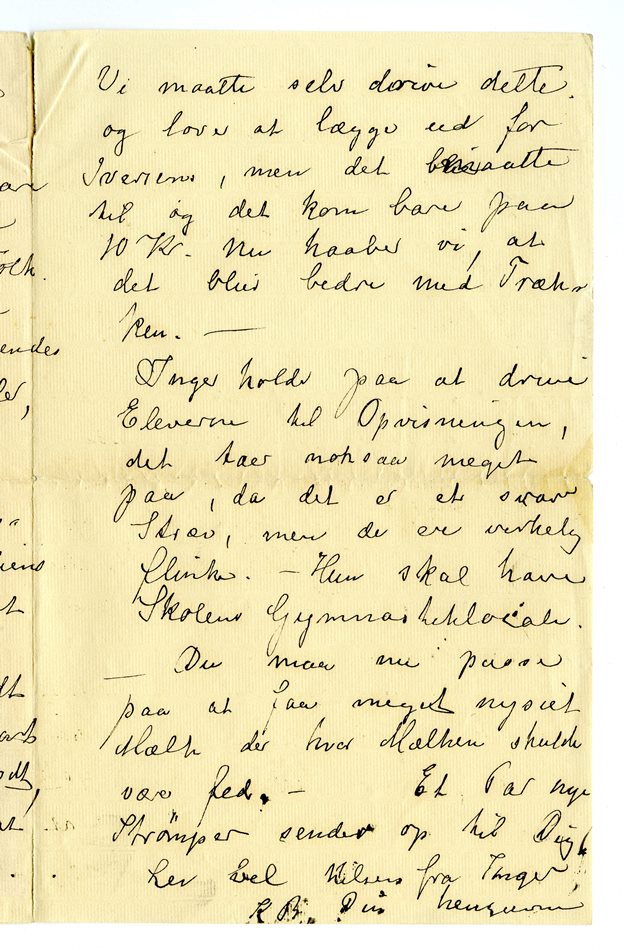 Vi maatte selv drive dette
og lover at lægge ud for
Iversens, men det maatte
til og det kom bare paa
10 Kr. Nu haaber vi, at
det bliver bedre med Træk-
ken. —
Inger holder paa at drive
Eleverne til Opvisningen,
det taer noksaa meget
paa, da det er et svare
Stræv, men de ere virkelig
flinke. – Hun skal have
Skolens Gymnastiklocale.
— Du maa nu passe
paa at faa meget nysiet
Mælk der hvor Mælken skulde
være fed. – Et Par nye
Strømper sender op til Dig.
Lev vel Hilsen fra Inger,
K B. Din hengivne
ar
olk.
endes
ler,
iens
t
dt
at